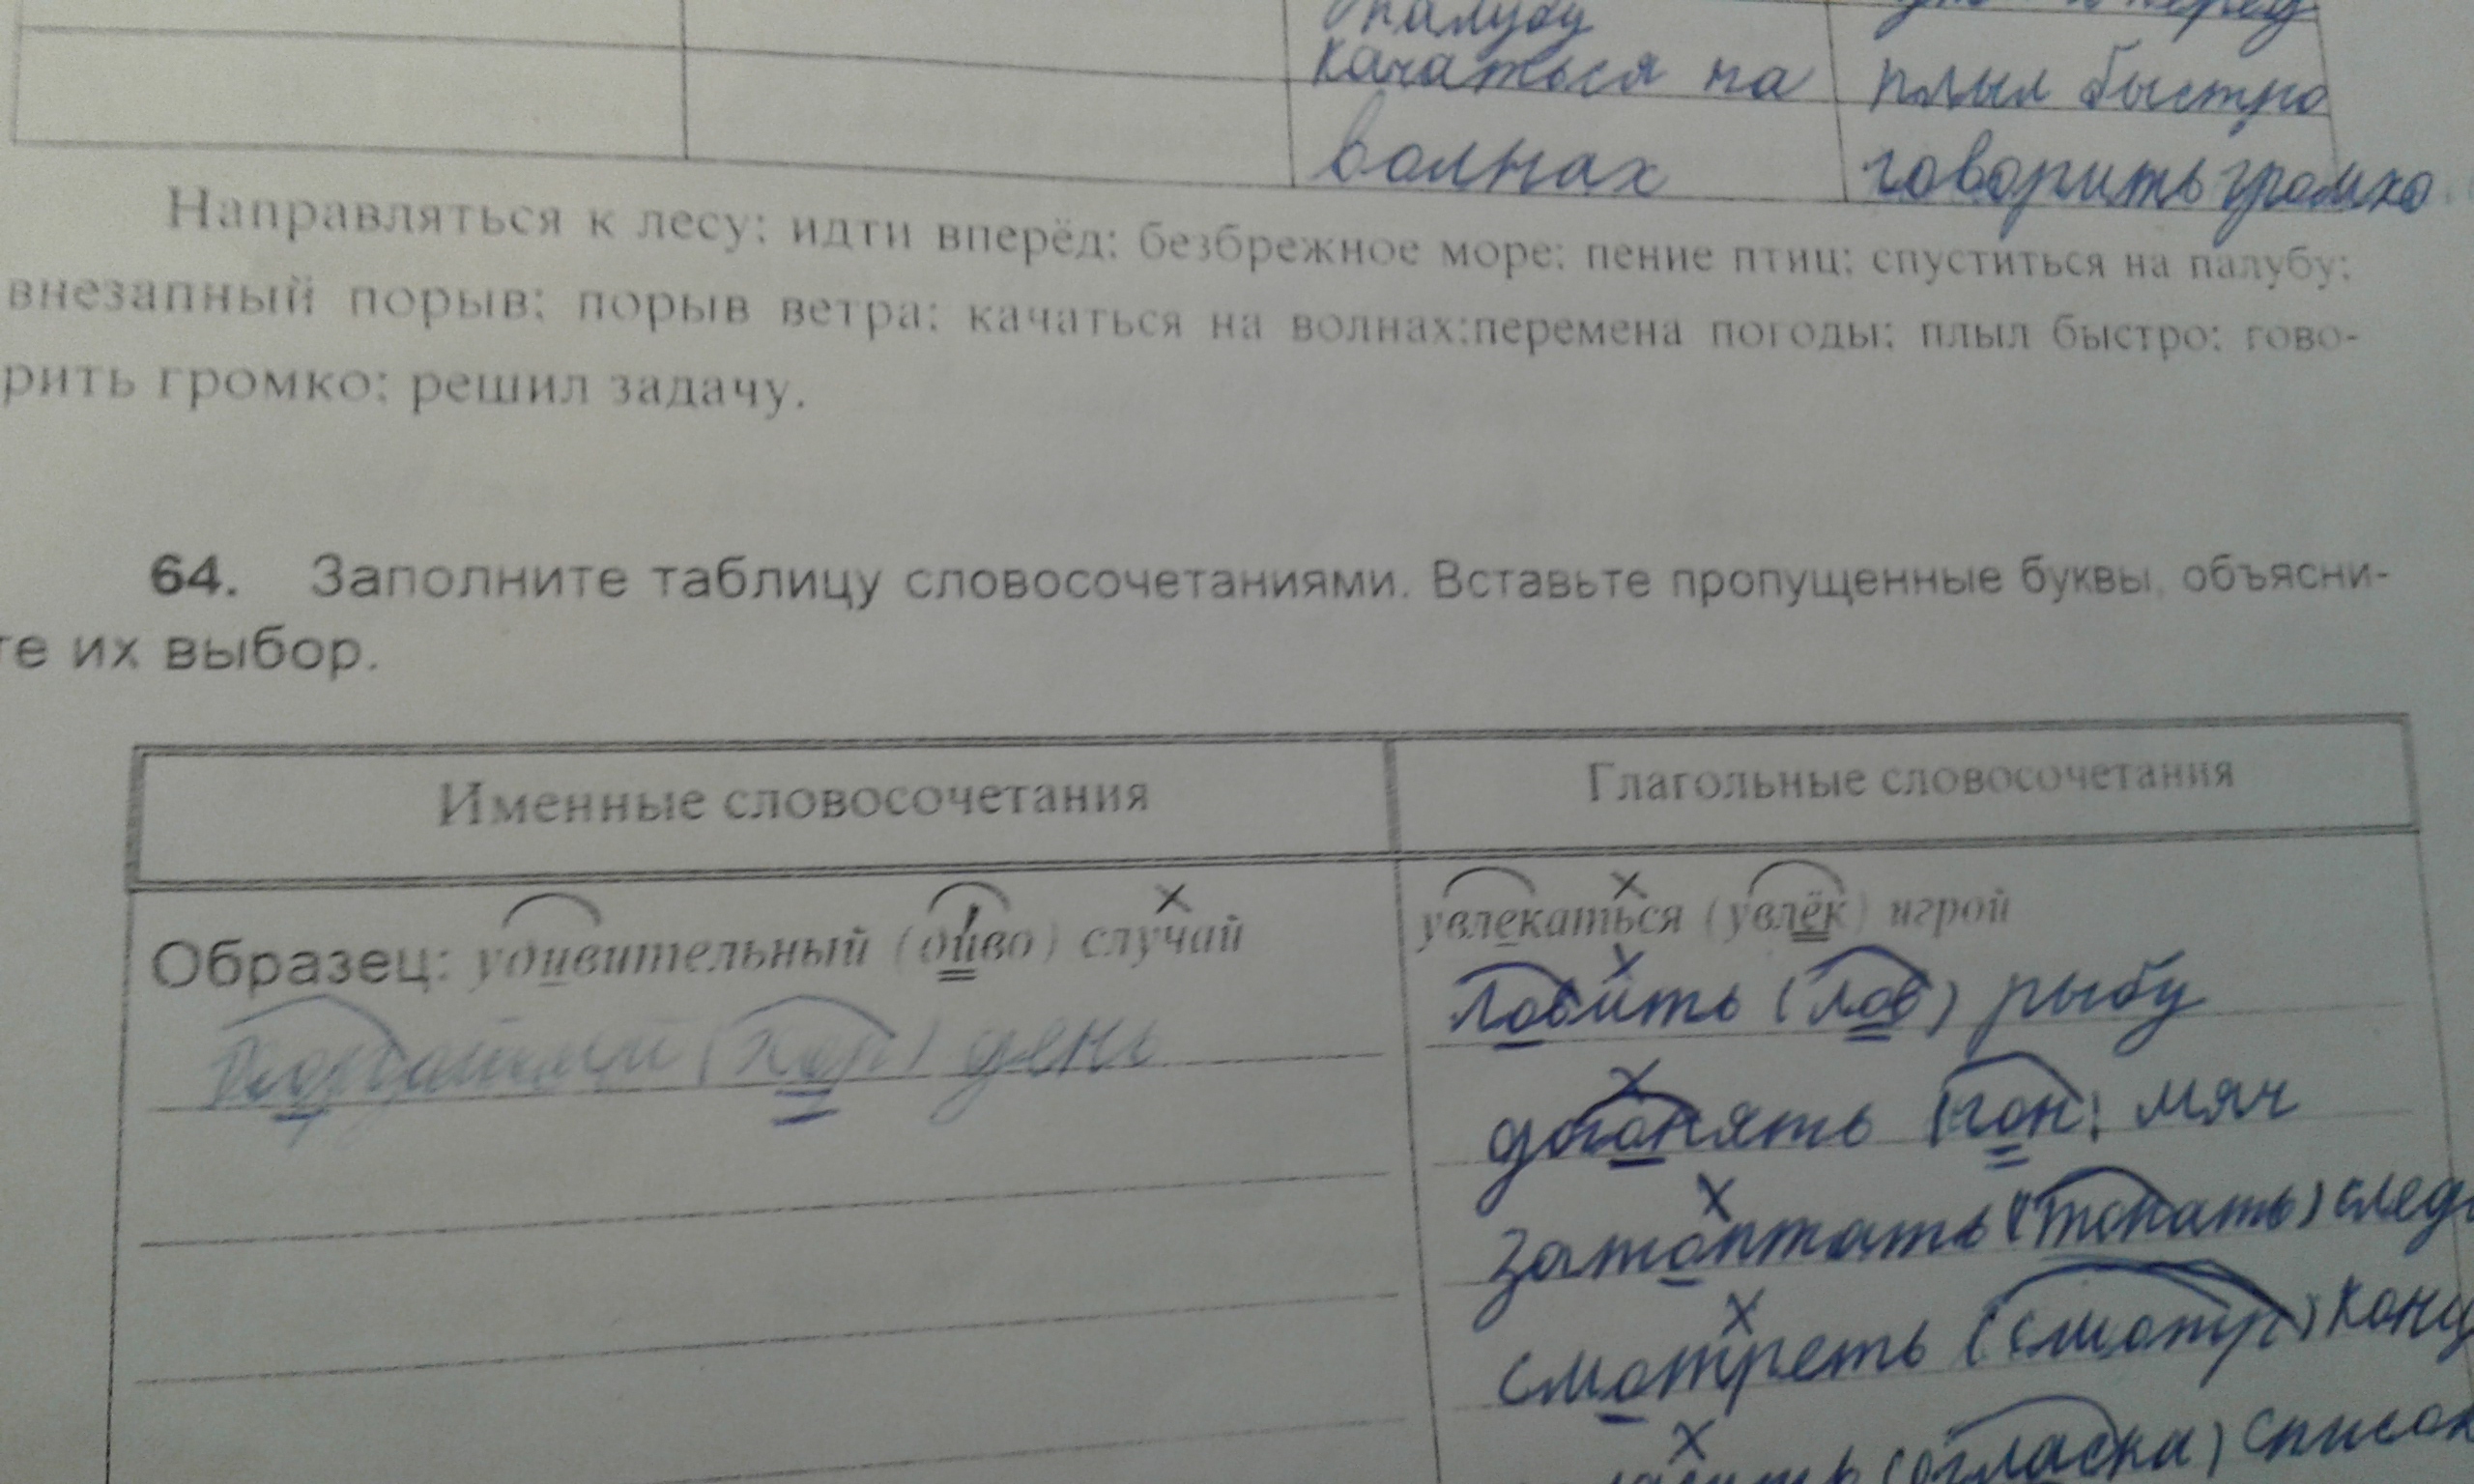 палубу
качаться на
плыл быстро
волнах
говорить громко
Направляться к лесу; идти вперёд; безбрежное море; пение птиц; спуститься на палубу;
внезапный порыв; порыв ветра; качаться на волнах;перемена погоды; плыл быстро; гово-
рить громко; решил задачу.
64. Заполните таблицу словосочетаниями. Вставьте пропущенные буквы, объясни-
те их выбор.
Именные словосочетания
Глагольные словосочетания
Образец: удивительный (диво) случай
увлекаться (увлёк) игрой
ловить (лов) рыбу
день
догонять (гон) мяч
затоптать (топать) след
смотреть (смотр) конц
(огласка) список